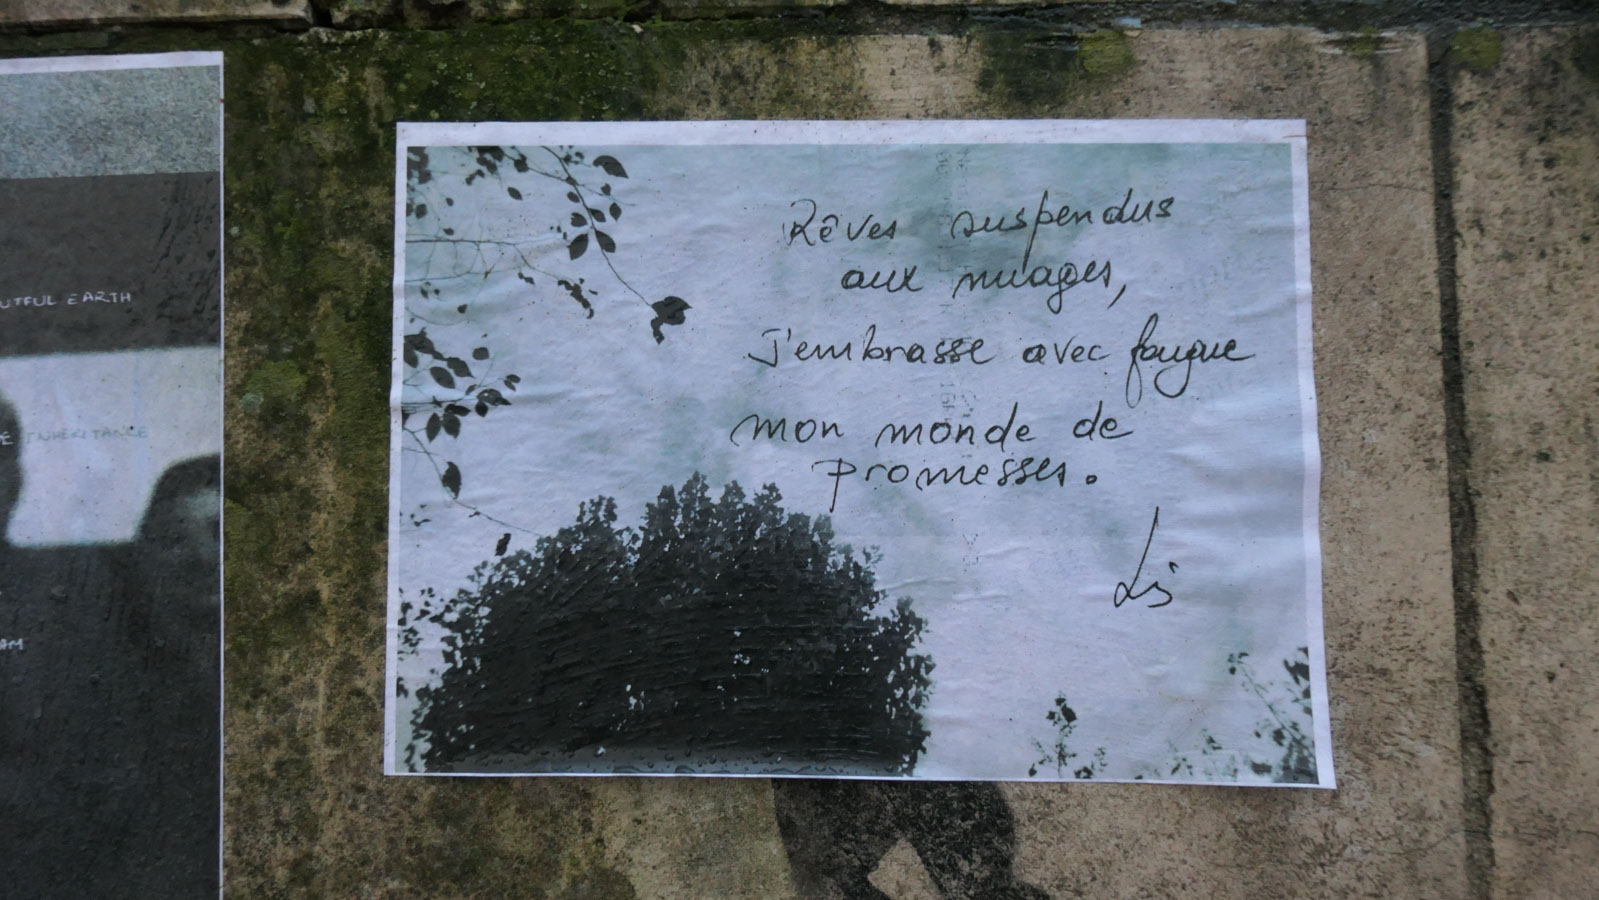 UTFUL EARTH
E INHERITANCE
AM
Rêves suspendus
aux nuages,
J'embrasse avec fougue
mon monde de
promesses.